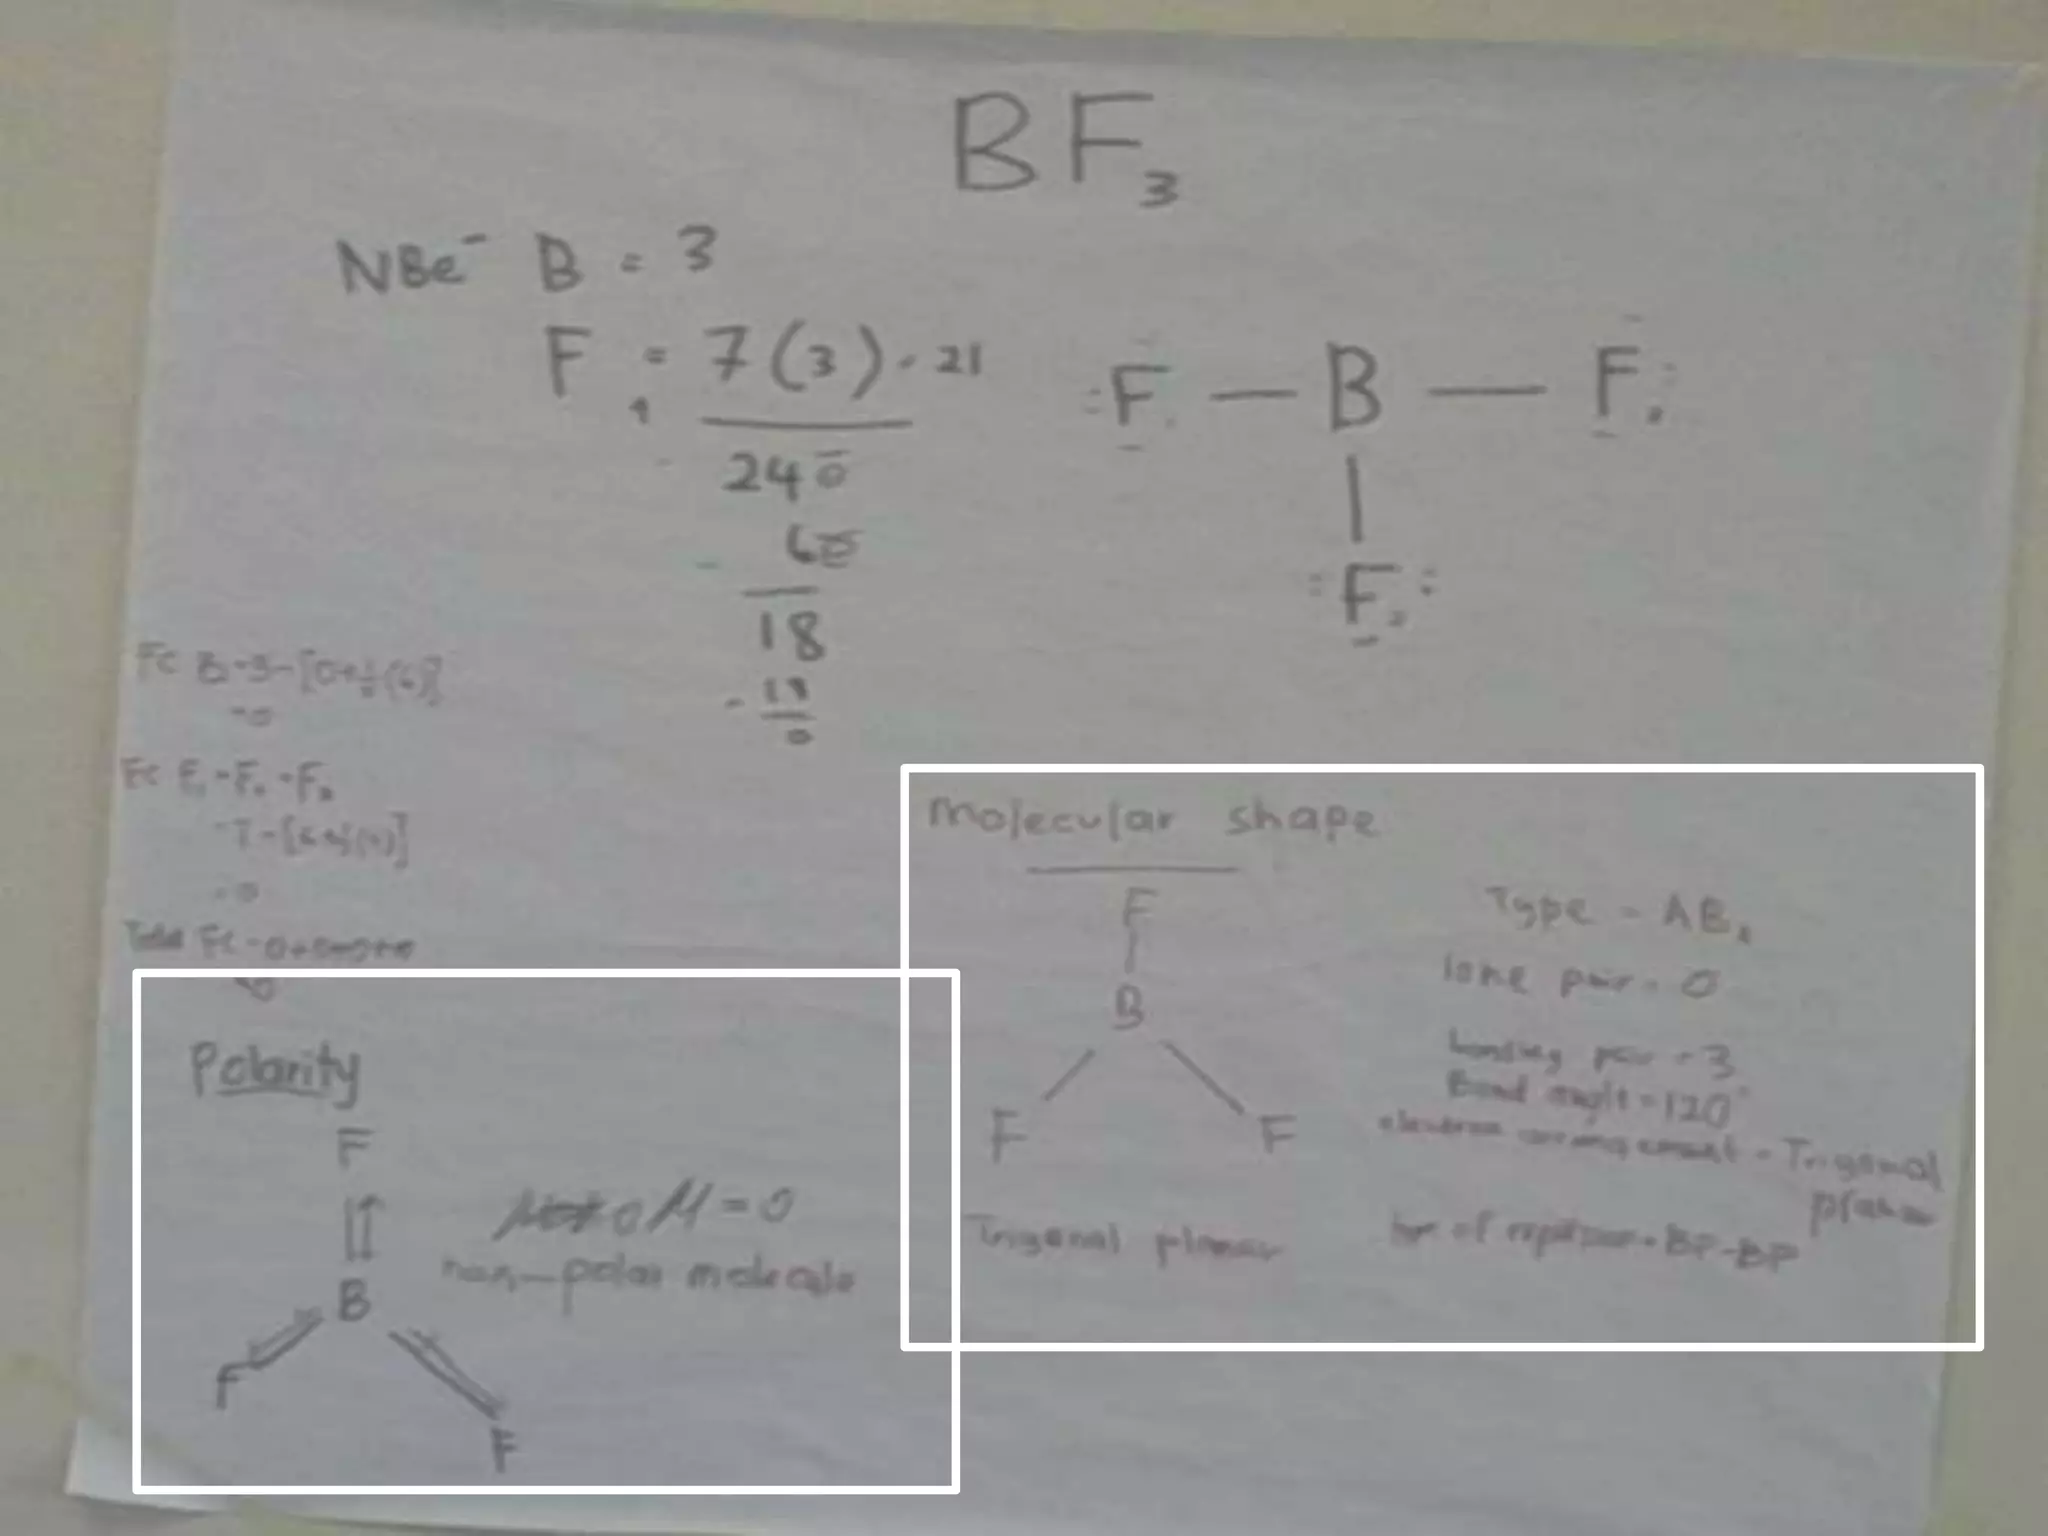 BF₃
NBe⁻ B = 3
F = 7(3) = 21
24 ē
- 6 ē
18
- 18
0
:F — B — F:
|
:F:
FC B = 3 - [0 + ½(6)]
= 0
FC F₁ = F₂ = F₃
= 7 - [6 + ½(2)]
= 0
Total FC = 0+0+0+0
= 0
Molecular shape
F
B
F F
Trigonal planar
Type = AB₃
lone pair = 0
bonding pair = 3
Bond angle = 120°
electron arrangement = Trigonal
planar
type of repulsion = BP-BP
Polarity
F
B
F
F
M = 0
non-polar molecule